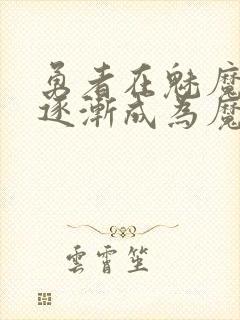 勇者在魅魔
逐漸成為魔
雲霄笙